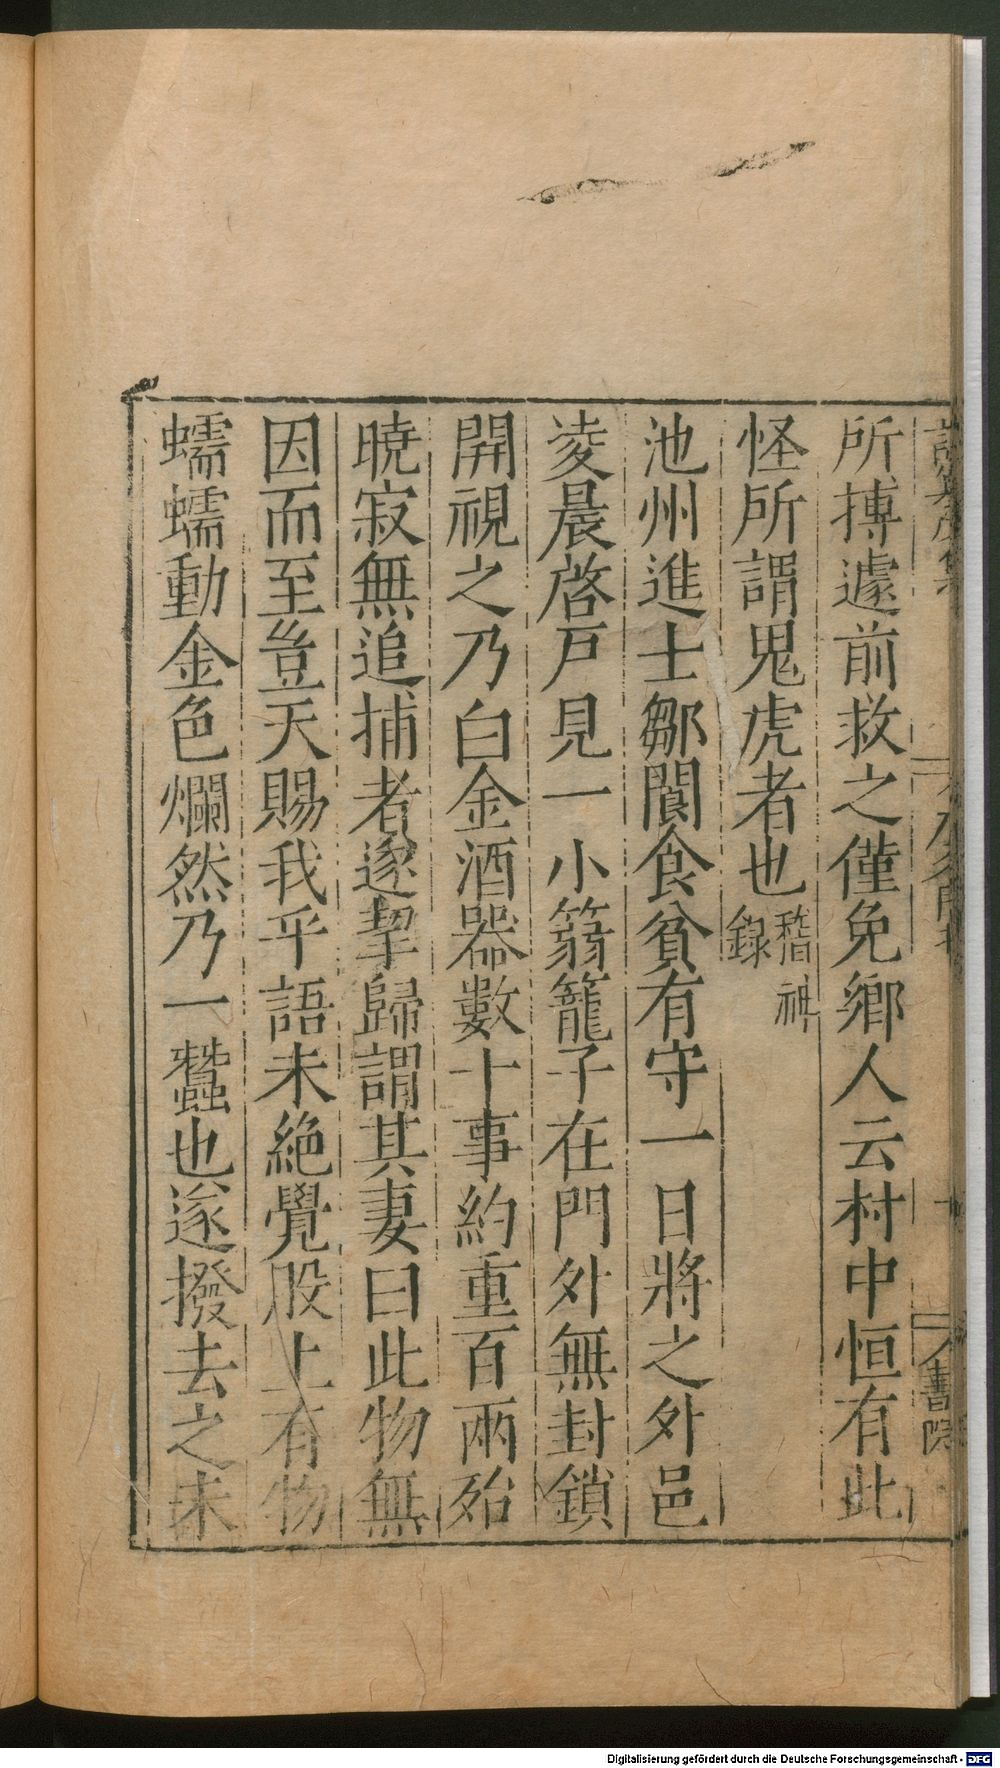 所搏遽前救之僅免鄉人云村中恒有此
怪所謂鬼虎者也稽神錄
池州進士鄒閬食貧有守一日將之外邑
凌晨啓戸見一小箬籠子在門外無封鎖
開視之乃白金酒器數十事約重百兩殆
曉寂無追捕者遂挈歸謂其妻曰此物無
因而至豈天賜我乎語未絶覺股上有物
蠕蠕動金色爛然乃一蠶也遂撥去之未
書院
Digitalisierung gefördert durch die Deutsche Forschungsgemeinschaft - DFG